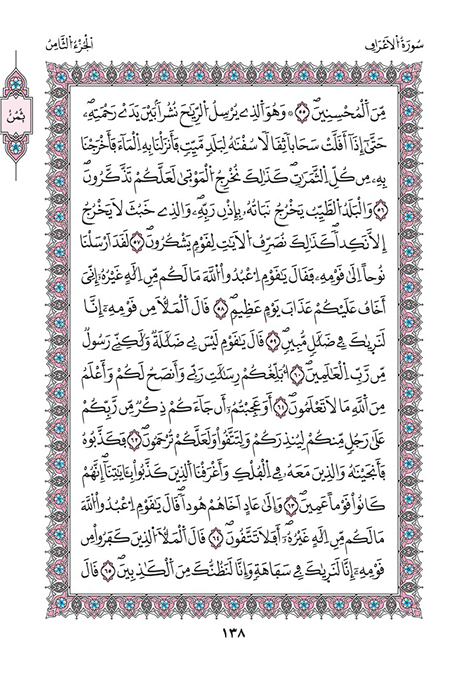 سُورَةُ اُ۬لَاعْرَافِ
اَ۬لْجُزْءُ اُ۬لثَّامِنُ
ثُمُنٌ
مِّنَ اَ۬لْمُحْسِنِينَۖ ٥٥ ۞ وَهُوَ اَ۬لذِے يُرْسِلُ اُ۬لرِّيَٰحَ نُشُراَۢ بَيْنَ يَدَےْ رَحْمَتِهِۦۖ
حَتَّىٰٓ إِذَآ أَقَلَّتْ سَحَاباٗ ثِقَالاٗ سُقْنَٰهُ لِبَلَدٖ مَّيِّتٖ فَأَنزَلْنَا بِهِ اِ۬لْمَآءَ فَأَخْرَجْنَا
بِهِۦ مِن كُلِّ اِ۬لثَّمَرَٰتِۖ كَذَٰلِكَ نُخْرِجُ اُ۬لْمَوْتَىٰ لَعَلَّكُمْ تَذَّكَّرُونَۖ
٥٦ وَالْبَلَدُ اُ۬لطَّيِّبُ يَخْرُجُ نَبَاتُهُۥ بِإِذْنِ رَبِّهِۦۖ وَالذِے خَبُثَ لَا يَخْرُجُ
إِلَّا نَكِداٗۖ كَذَٰلِكَ نُصَرِّفُ اُ۬لَايَٰتِ لِقَوْمٖ يَشْكُرُونَۖ ٥٧ لَقَدَ اَرْسَلْنَا
نُوحاً اِلَىٰ قَوْمِهِۦ فَقَالَ يَٰقَوْمِ اِ۟عْبُدُواْ اُ۬للَّهَ مَا لَكُم مِّنِ اِلَٰهٍ غَيْرُهُۥٓۖ إِنِّيَ
أَخَافُ عَلَيْكُمْ عَذَابَ يَوْمٍ عَظِيمٖۖ ٥٨ قَالَ اَ۬لْمَلَأُ مِن قَوْمِهِۦٓ إِنَّا
لَنَر۪يٰكَ فِے ضَلَٰلٖ مُّبِينٖۖ ٥٩ قَالَ يَٰقَوْمِ لَيْسَ بِے ضَلَٰلَةٞ وَلَٰكِنِّے رَسُولٞ
مِّن رَّبِّ اِ۬لْعَٰلَمِينَۖ ٦٠ أُبَلِّغُكُمْ رِسَٰلَٰتِ رَبِّے وَأَنصَحُ لَكُمْ وَأَعْلَمُ
مِنَ اَ۬للَّهِ مَا لَا تَعْلَمُونَۖ ٦١ أَوَعَجِبْتُمُۥٓ أَن جَآءَكُمْ ذِكْرٞ مِّن رَّبِّكُمْ
عَلَىٰ رَجُلٖ مِّنكُمْ لِيُنذِرَكُمْ وَلِتَتَّقُواْ وَلَعَلَّكُمْ تُرْحَمُونَۖ ٦٢ فَكَذَّبُوهُ
فَأَنجَيْنَٰهُ وَالذِينَ مَعَهُۥ فِے اِ۬لْفُلْكِ وَأَغْرَقْنَا اَ۬لذِينَ كَذَّبُواْ بِـَٔايَٰتِنَآۖ إِنَّهُمْ
كَانُواْ قَوْماً عَمِينَۖ ٦٣ وَإِلَىٰ عَادٍ اَخَاهُمْ هُوداٗۖ قَالَ يَٰقَوْمِ اِ۟عْبُدُواْ اُ۬للَّهَ
مَا لَكُم مِّنِ اِلَٰهٍ غَيْرُهُۥٓۖ أَفَلَا تَتَّقُونَۖ ٦٤ قَالَ اَ۬لْمَلَأُ اُ۬لذِينَ كَفَرُواْ مِن
قَوْمِهِۦٓ إِنَّا لَنَر۪يٰكَ فِے سَفَاهَةٖ وَإِنَّا لَنَظُنُّكَ مِنَ اَ۬لْكَٰذِبِينَۖ ٦٥ قَالَ
١٣٨